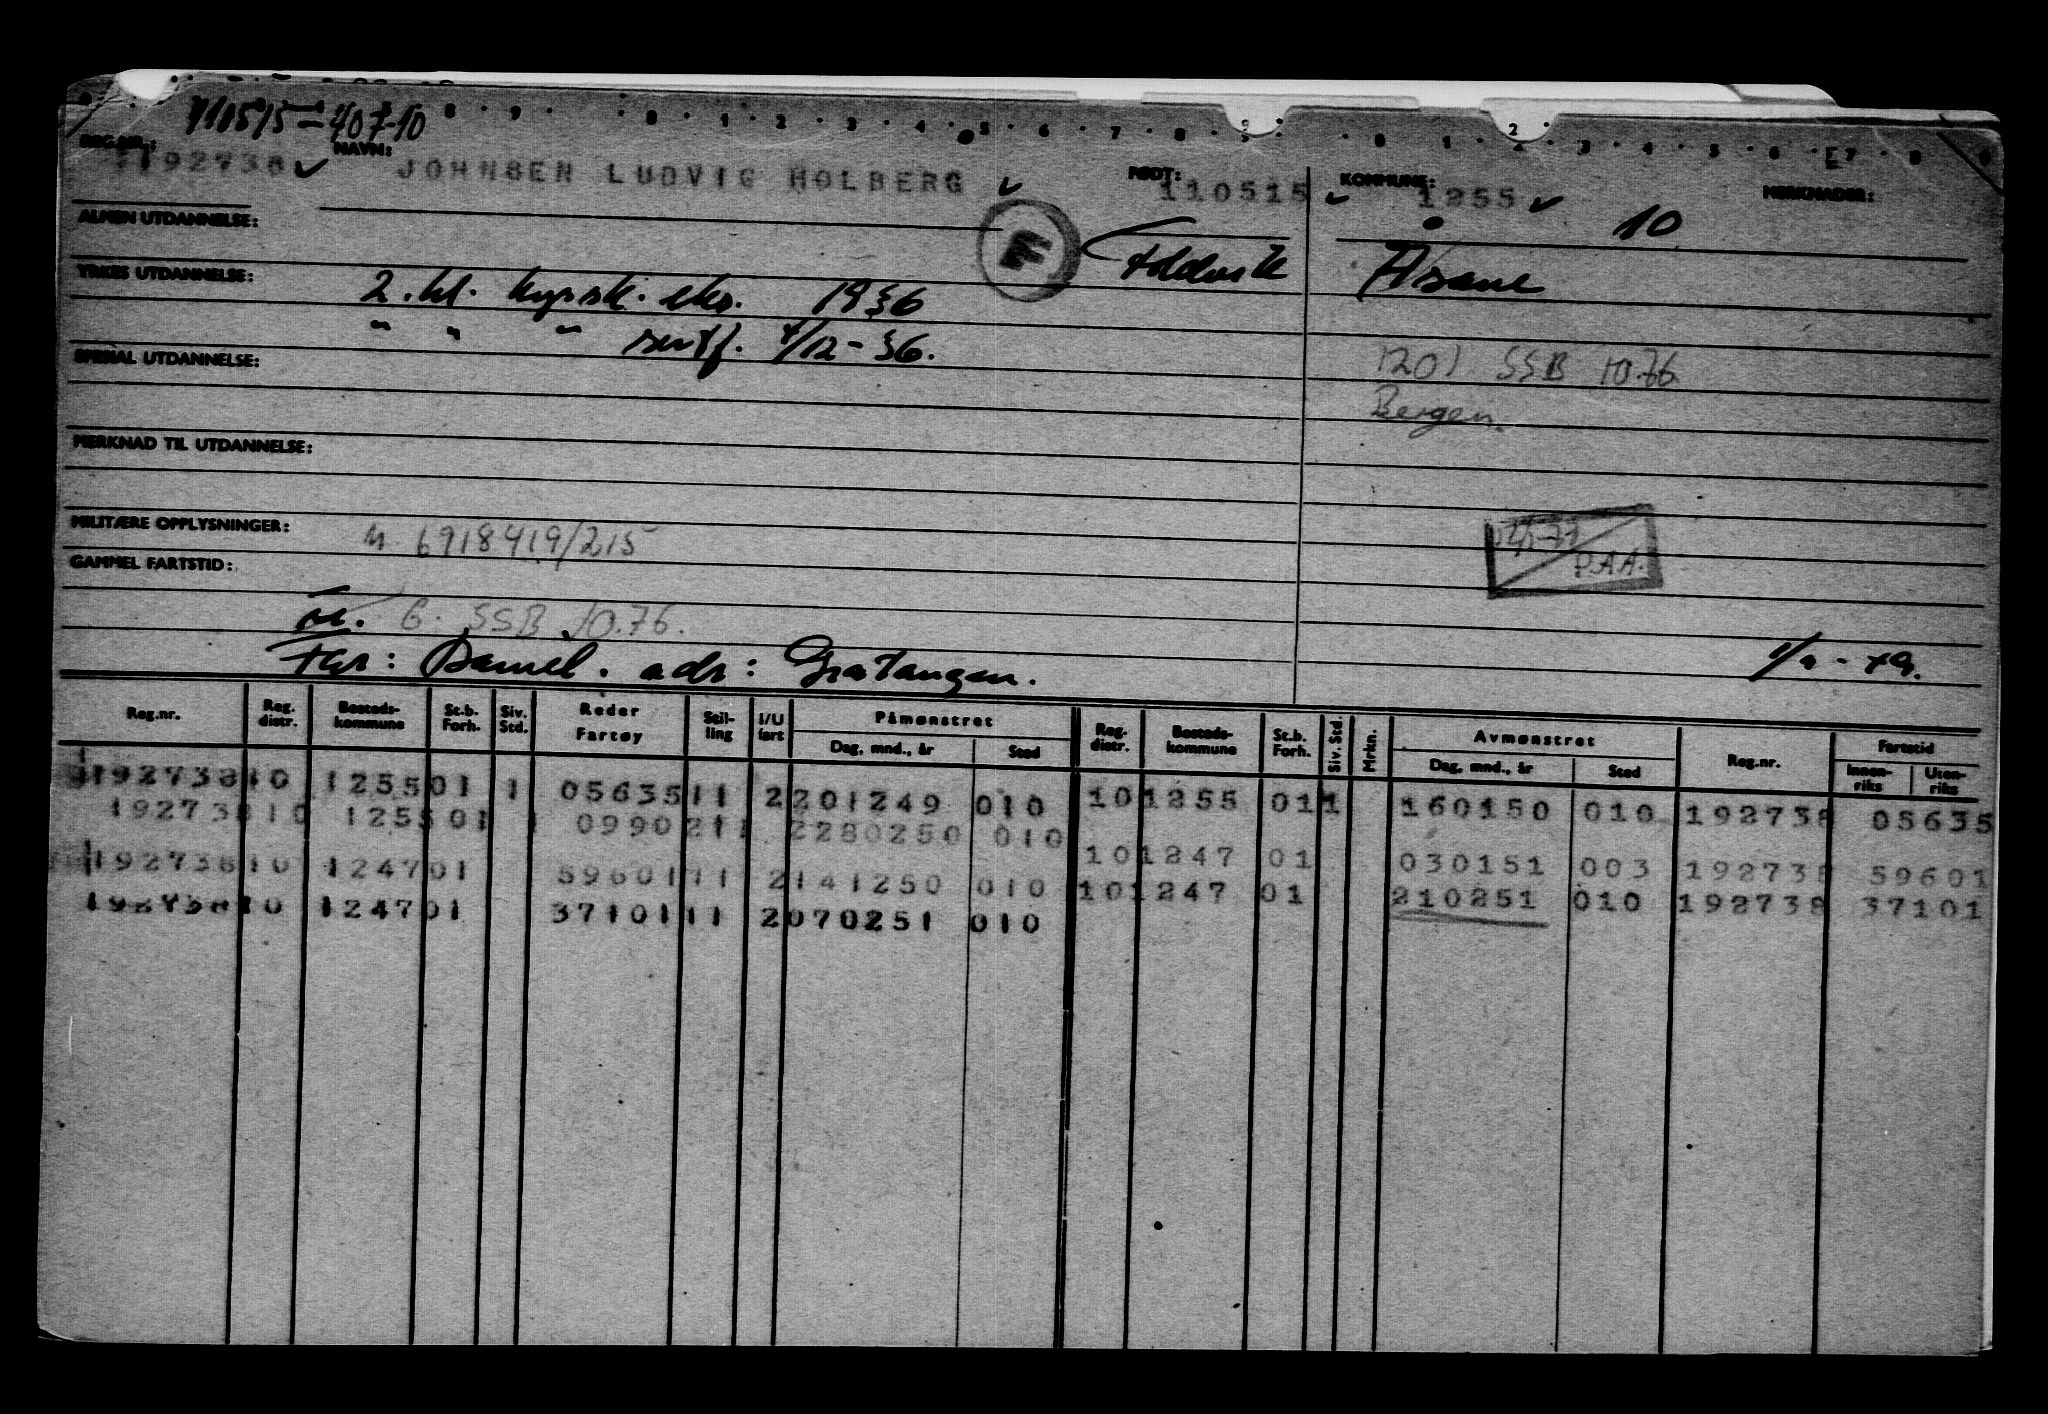 110515-40710
REG.NR.: NAVN: FØDT: KOMMUNE: MERKNADER:
192738 JOHNSEN LUDVIG HOLBERG 110515 1255
10
ALMEN UTDANNELSE:
F Foldvik Åsane
YRKES UTDANNELSE: 2. kl. kyssk. eks. 1936
" " " sertf. 4/12-36.
SPESIAL UTDANNELSE:
1201 SSB 10.76
Bergen.
MERKNAD TIL UTDANNELSE:
MILITÆRE OPPLYSNINGER: M. 6918419/215
P.A.A.
GAMMEL FARTSTID:
G. SSB 10.76.
Far: Daniel. adr: Gratangen.
1/1-49.
Reg.nr. Reg. distr. Bosteds-kommune St.b. Forh. Siv. Std. Reder Fartøy Stil-ling I/U fart Påmønstret Dag, mnd., år Sted Reg. distr. Bosteds-kommune St.b. Forh. Siv. Std. Mrkn. Avmønstret Dag, mnd., år Sted Reg.nr. Fartstid Innen-riks Uten-riks
192738 10 1255 01 1 05635 11 2 201249 010 10 1255 01 1 160150 010 192738 05635
192738 10 1255 01 1 0990211 2 280250 010
192738 10 1247 01 59601 11 2 141250 010 10 1247 01 030151 003 192738 59601
192738 10 1247 01 37101 11 2 070251 010 10 1247 01 210251 010 192738 37101